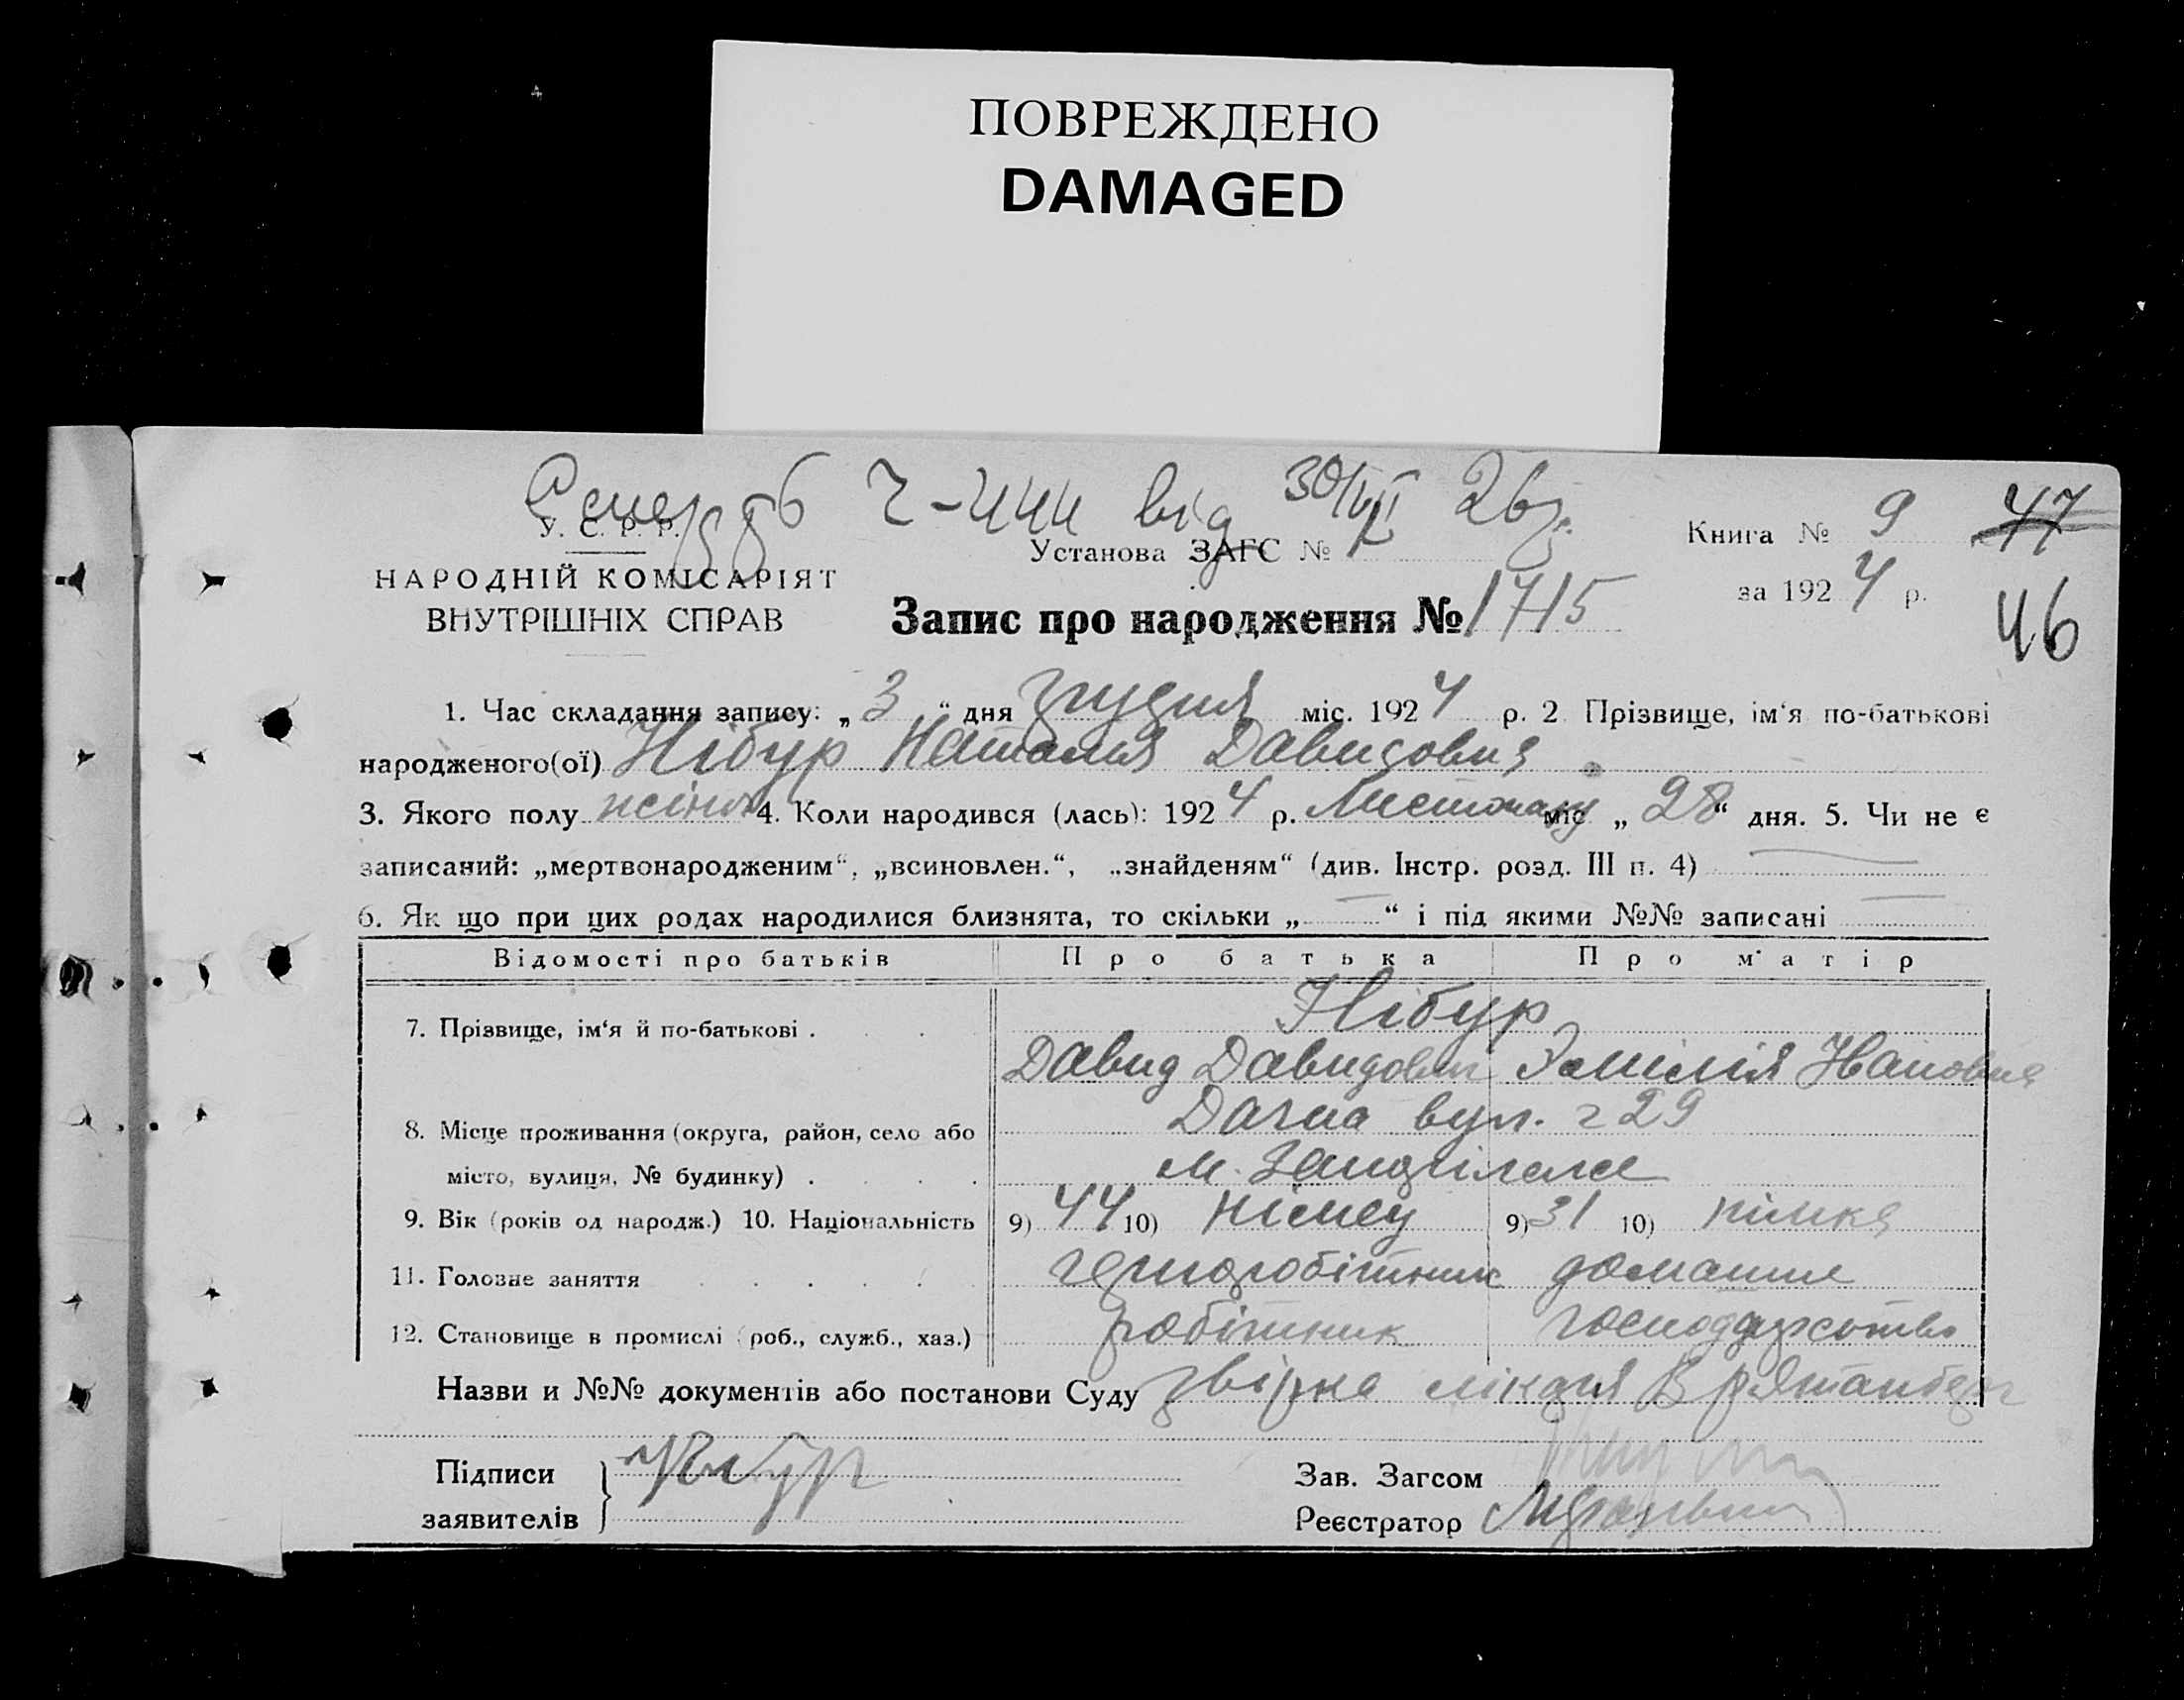 ПОВРЕЖДЕНО
DAMAGED
від 30/VI 26 р.
У. С. Р. Р.
НАРОДНІЙ КОМІСАРІЯТ
ВНУТРІШНІХ СПРАВ
Установа ЗАГС №
Книга № 9 47
за 1924 р. 46
Запис про народження № 1715
1. Час складання запису: „3“ дня грудня міс. 1924 р. 2 Прізвище, ім‘я по-батькові
народженого(ої) Нібур Наталия Давидовна
3. Якого полу жіноч 4. Коли народився (лась): 1924 р. Листопаду міс „28“ дня. 5. Чи не є
записаний: „мертвонародженим“, „всиновлен.“, „знайденям“ (див. Інстр. розд. III п. 4)
6. Як що при цих родах народилися близнята, то скільки „ “ і під якими №№ записані
Відомості про батьків Про батька Про м‘атір
7. Прізвище, ім‘я й по-батькові . Нібур
Давид Давидович Эмілія Ивановна
8. Місце проживання (округа, район, село або Дачна вул. 29
місто, вулиця, № будинку) . м.
9. Вік (років од народж.) 10. Національність 9) 44 10) німец 9) 31 10) німка
11. Головне заняття черноробітник домашне
12. Становище в промислі (роб., служб., хаз.) робітник господарство
Назви и №№ документів або постанови Суду лікаря
Підписи Нібур Зав. Загсом
заявителів Реєстратор